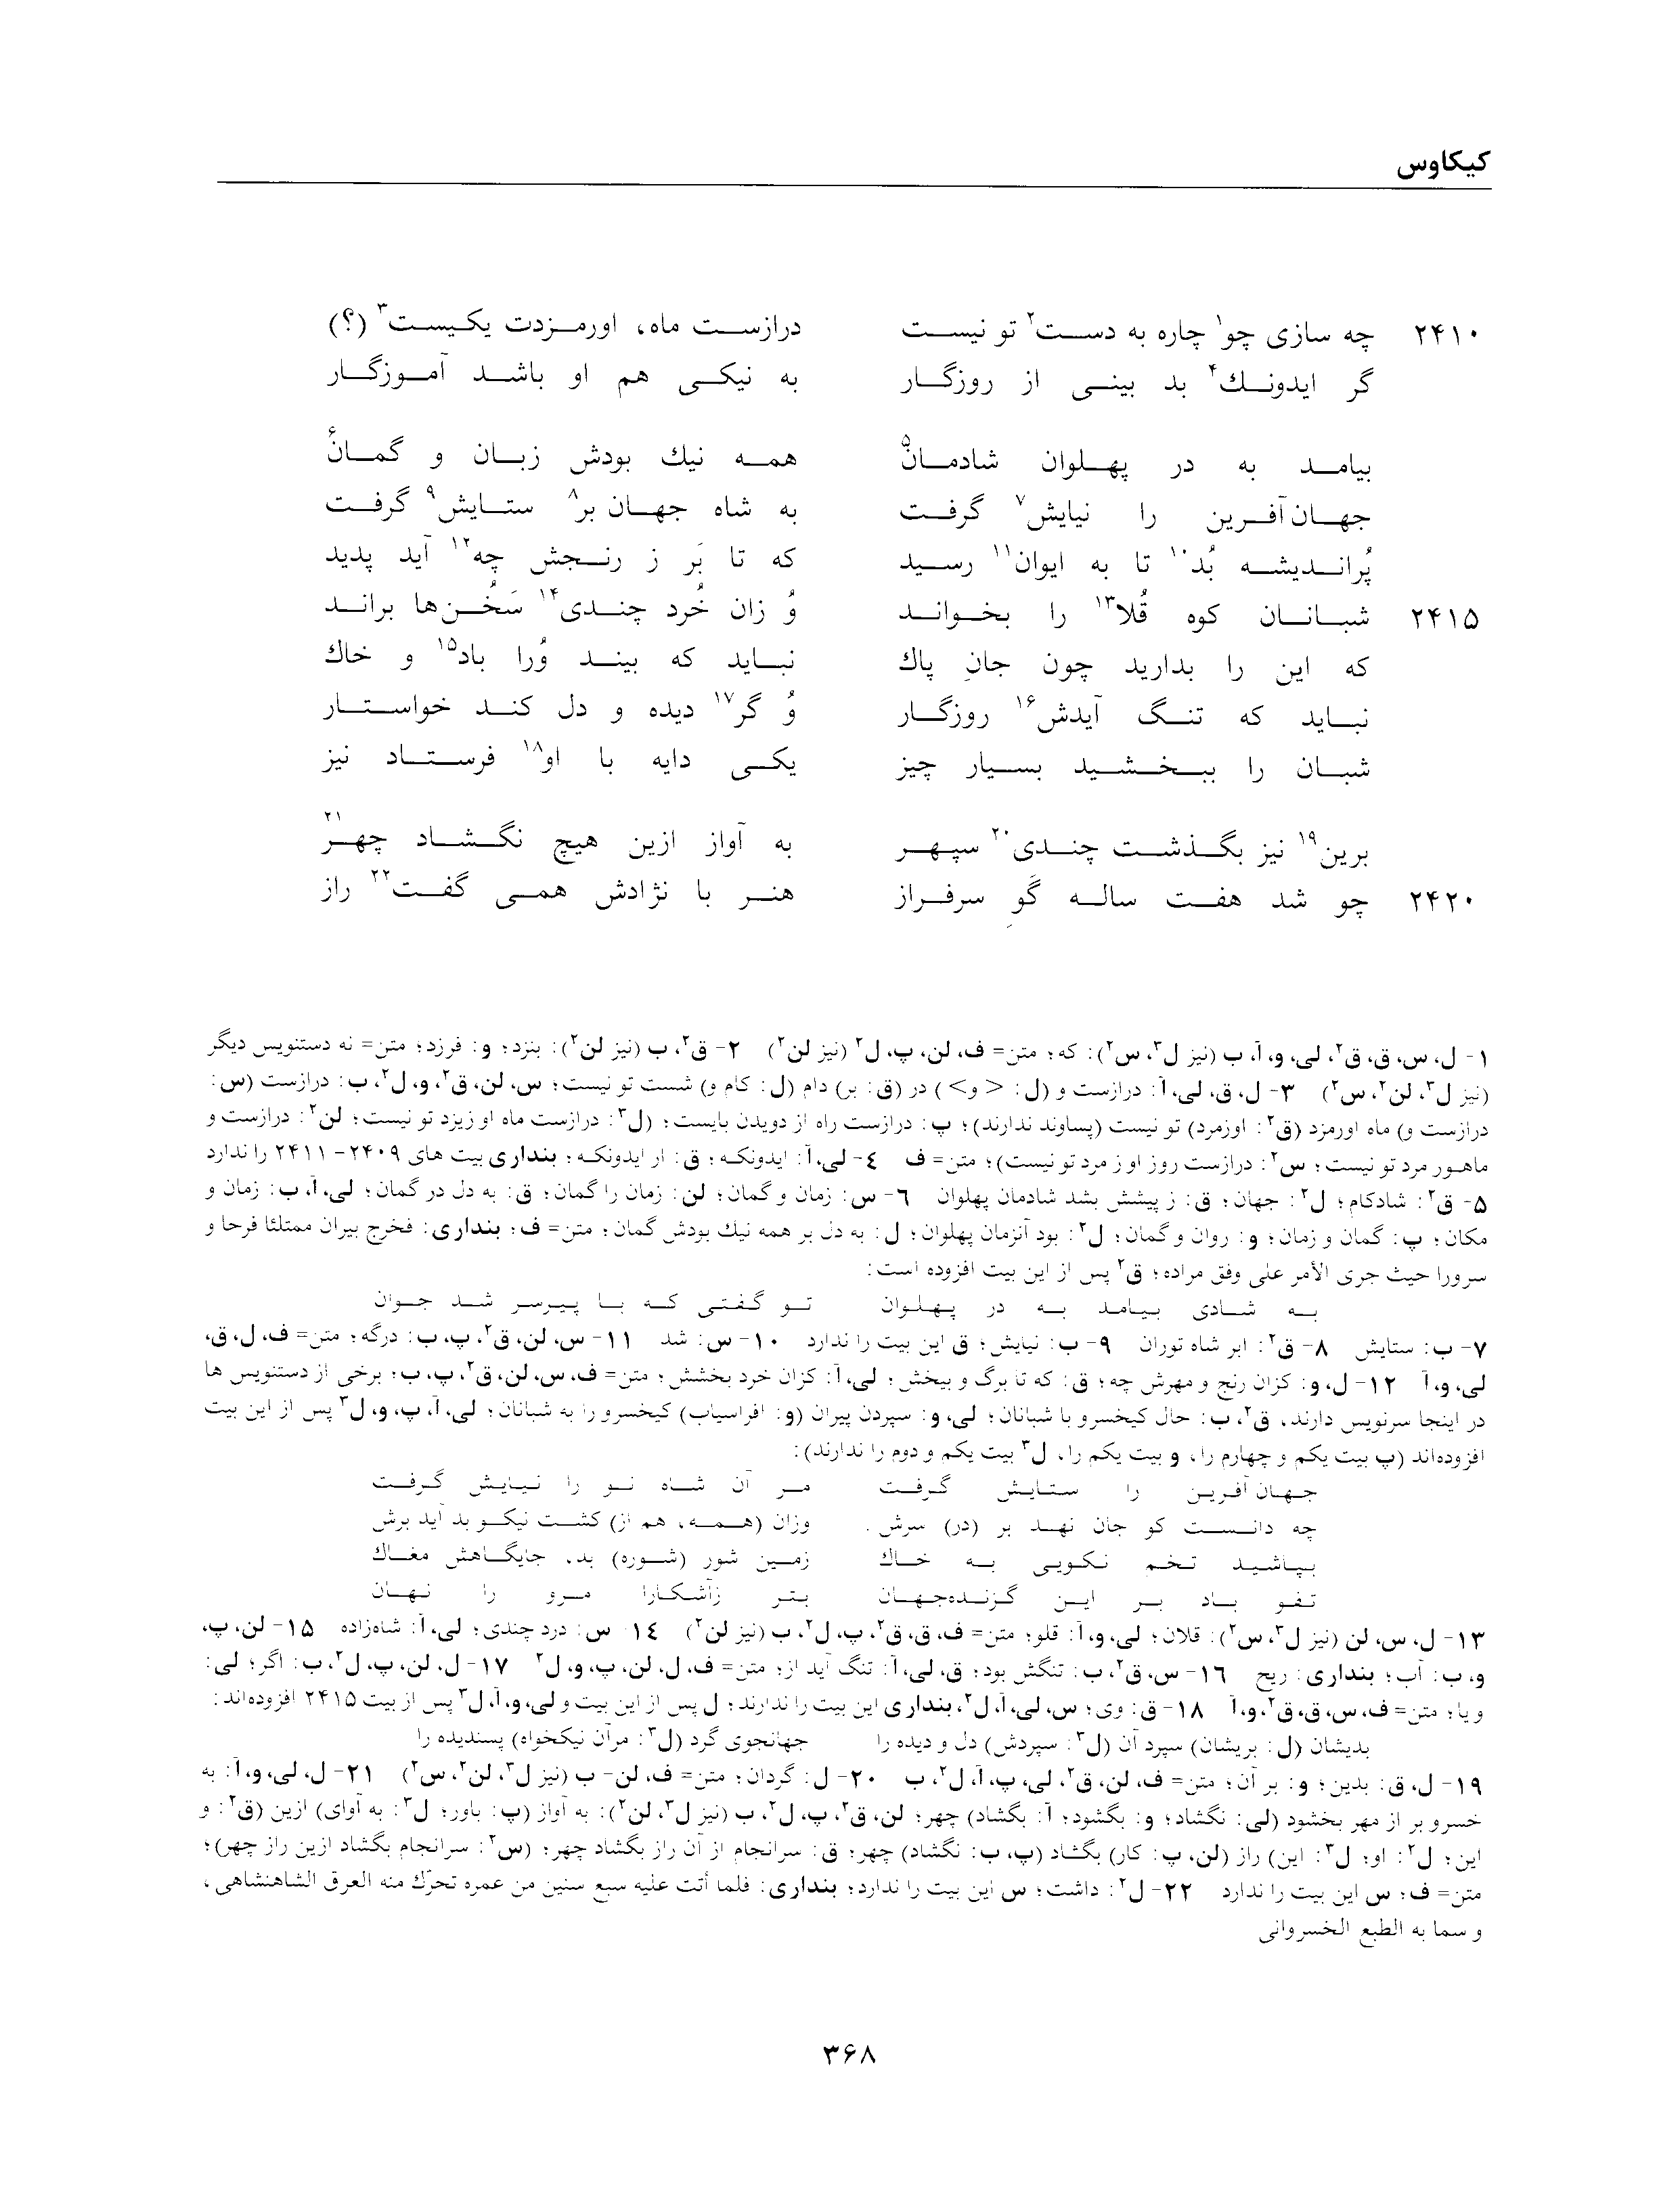 کیکاوس
۲۴۱۰ چه سازی چو۱ چاره به دست۲ تو نیست درازست ماه، اورمزدت یکیست۳ (؟)
گر ایدونك۴ بد بینی از روزگار به نیکی هم او باشد آموزگار
بیامد به در پهلوان شادمان۵ همه نیك بودش زبان و گمان۶
جهان‌آفرین را نیایش۷ گرفت به شاه جهان بر۸ ستایش۹ گرفت
پُراندیشه بُد۱۰ تا به ایوان۱۱ رسید که تا بَر ز رنجش چه۱۲ آید پدید
۲۴۱۵ شبانان کوه قُلا۱۳ را بخواند وُ زان خُرد چندی۱۴ سَخُن‌ها براند
که این را بدارید چون جانِ پاك نباید که بیند وُرا باد۱۵ و خاك
نباید که تنگ آیدش۱۶ روزگار وُ گر۱۷ دیده و دل کند خواستار
شبان را ببخشید بسیار چیز یکی دایه با او۱۸ فرستاد نیز
برین۱۹ نیز بگذشت چندی۲۰ سپهر به آواز ازین هیچ نگشاد چهر۲۱
۲۴۲۰ چو شد هفت ساله گَوِ سرفراز هنر با نژادش همی گفت۲۲ راز
۱- ل، س، ق، ق۲، لی، و، آ، ب (نیز ل۳، س۲): که؛ متن= ف، لن، پ، ل۲ (نیز لن۲) ۲- ق۲، ب (نیز لن۲): بنزد؛ و: فرزد؛ متن= نه دستنویس دیگر
(نیز ل۳، لن۲، س۲) ۳- ل، ق، لی، آ: درازست و (ل: <و>) در (ق: بر) دام (ل: کام و) شست تو نیست؛ س، لن، ق۲، و، ل۲، ب: درازست (س:
درازست و) ماه اورمزد (ق۲: اوزمرد) تو نیست (پساوند ندارند)؛ پ: درازست راه از دویدن بایست؛ (ل۳: درازست ماه او زیزد تو نیست؛ لن۲: درازست و
ماهور مرد تو نیست؛ س۲: درازست روز او ز مرد تو نیست)؛ متن= ف ۴- لی، آ: ایدونکه؛ ق: ار ایدونکه؛ بنداری بیت های ۲۴۰۹-۲۴۱۱ را ندارد
۵- ق۲: شادکام؛ ل۲: جهان؛ ق: ز پیشش بشد شادمان پهلوان ۶- س: زمان و گمان؛ لن: زمان را گمان؛ ق: به دل در گمان؛ لی، آ، ب: زمان و
مکان؛ پ: گمان و زمان؛ و: روان و گمان؛ ل۲: بود آنزمان پهلوان؛ ل: به دل بر همه نیك بودش گمان؛ متن= ف؛ بنداری: فخرج بیران ممتلئا فرحا و
سرورا حیث جری الأمر علی وفق مراده؛ ق۲ پس از این بیت افزوده است:
به شادی بیامد به در پهلوان تو گفتی که با پیرسر شد جوان
۷- ب: ستایش ۸- ق۲: ابر شاه توران ۹- ب: نیایش؛ ق این بیت را ندارد ۱۰- س: شد ۱۱- س، لن، ق۲، پ، ب: درگه؛ متن= ف، ل، ق،
لی، و، آ ۱۲- ل، و: کزان رنج و مهرش چه؛ ق: که تا برگ و بیخش؛ لی، آ: کزان خرد بخشش؛ متن= ف، س، لن، ق۲، پ، ب؛ برخی از دستنویس ها
در اینجا سرنویس دارند. ق۲، ب: حال کیخسرو با شبانان؛ لی، و: سپردن پیران (و: افراسیاب) کیخسرو را به شبانان؛ لی، آ، پ، و، ل۳ پس از این بیت
افزوده‌اند (پ بیت یکم و چهارم را، و بیت یکم را، ل۳ بیت یکم و دوم را ندارند):
جهان‌آفرین را ستایش گرفت مر آن شاه نو را نیایش گرفت
چه دانست کو جان نهد بر (در) سرش . وزان (همه، هم از) کشت نیکو بد آید برش
بپاشید تخم نکویی به خاك زمین شور (شوره) بد، جایگاهش مغاك
تفو باد بر این گزنده‌جهان بتر زآشکارا مرو را نهان
۱۳- ل، س، لن (نیز ل۳، س۲): قلان؛ لی، و، آ: قلو؛ متن= ف، ق، ق۲، پ، ل۲، ب (نیز لن۲) ۱۴- س: درد چندی؛ لی، آ: شاه‌زاده ۱۵- لن، پ،
و، ب: آب؛ بنداری: ریح ۱۶- س، ق۲، ب: تنگش بود؛ ق، لی، آ: تنگ آید از؛ متن= ف، ل، لن، پ، و، ل۲ ۱۷- ل، لن، پ، ل۲، ب: اگر؛ لی:
و یا؛ متن= ف، س، ق، ق۲، و، آ ۱۸- ق: وی؛ س، لی، آ، ل۲، بنداری این بیت را ندارند؛ ل پس از این بیت و لی، و، آ، ل۳ پس از بیت ۲۴۱۵ افزوده‌اند:
بدیشان (ل: بریشان) سپرد آن (ل۳: سپردش) دل و دیده را جهانجوی گرد (ل۳: مرآن نیکخواه) پسندیده را
۱۹- ل، ق: بدین؛ و: بر آن؛ متن= ف، لن، ق۲، لی، پ، آ، ل۲، ب ۲۰- ل: گردان؛ متن= ف، لن- ب (نیز ل۳، لن۲، س۲) ۲۱- ل، لی، و، آ: به
خسرو بر از مهر بخشود (لی: نگشاد؛ و: بگشود؛ آ: بگشاد) چهر؛ لن، ق۲، پ، ل۲، ب (نیز ل۳، لن۲): به آواز (پ: باور؛ ل۳: به آوای) ازین (ق۲: و
این؛ ل۲: او؛ ل۳: این) راز (لن، پ: کار) بگشاد (پ، ب: نگشاد) چهر؛ ق: سرانجام از آن راز بگشاد چهر؛ (س۲: سرانجام بگشاد ازین راز چهر)؛
متن= ف؛ س این بیت را ندارد ۲۲- ل۲: داشت؛ س این بیت را ندارد؛ بنداری: فلما أتت علیه سبع سنین من عمره تحرّك منه العرق الشاهنشاهی،
و سما به الطبع الخسروانی
۳۶۸